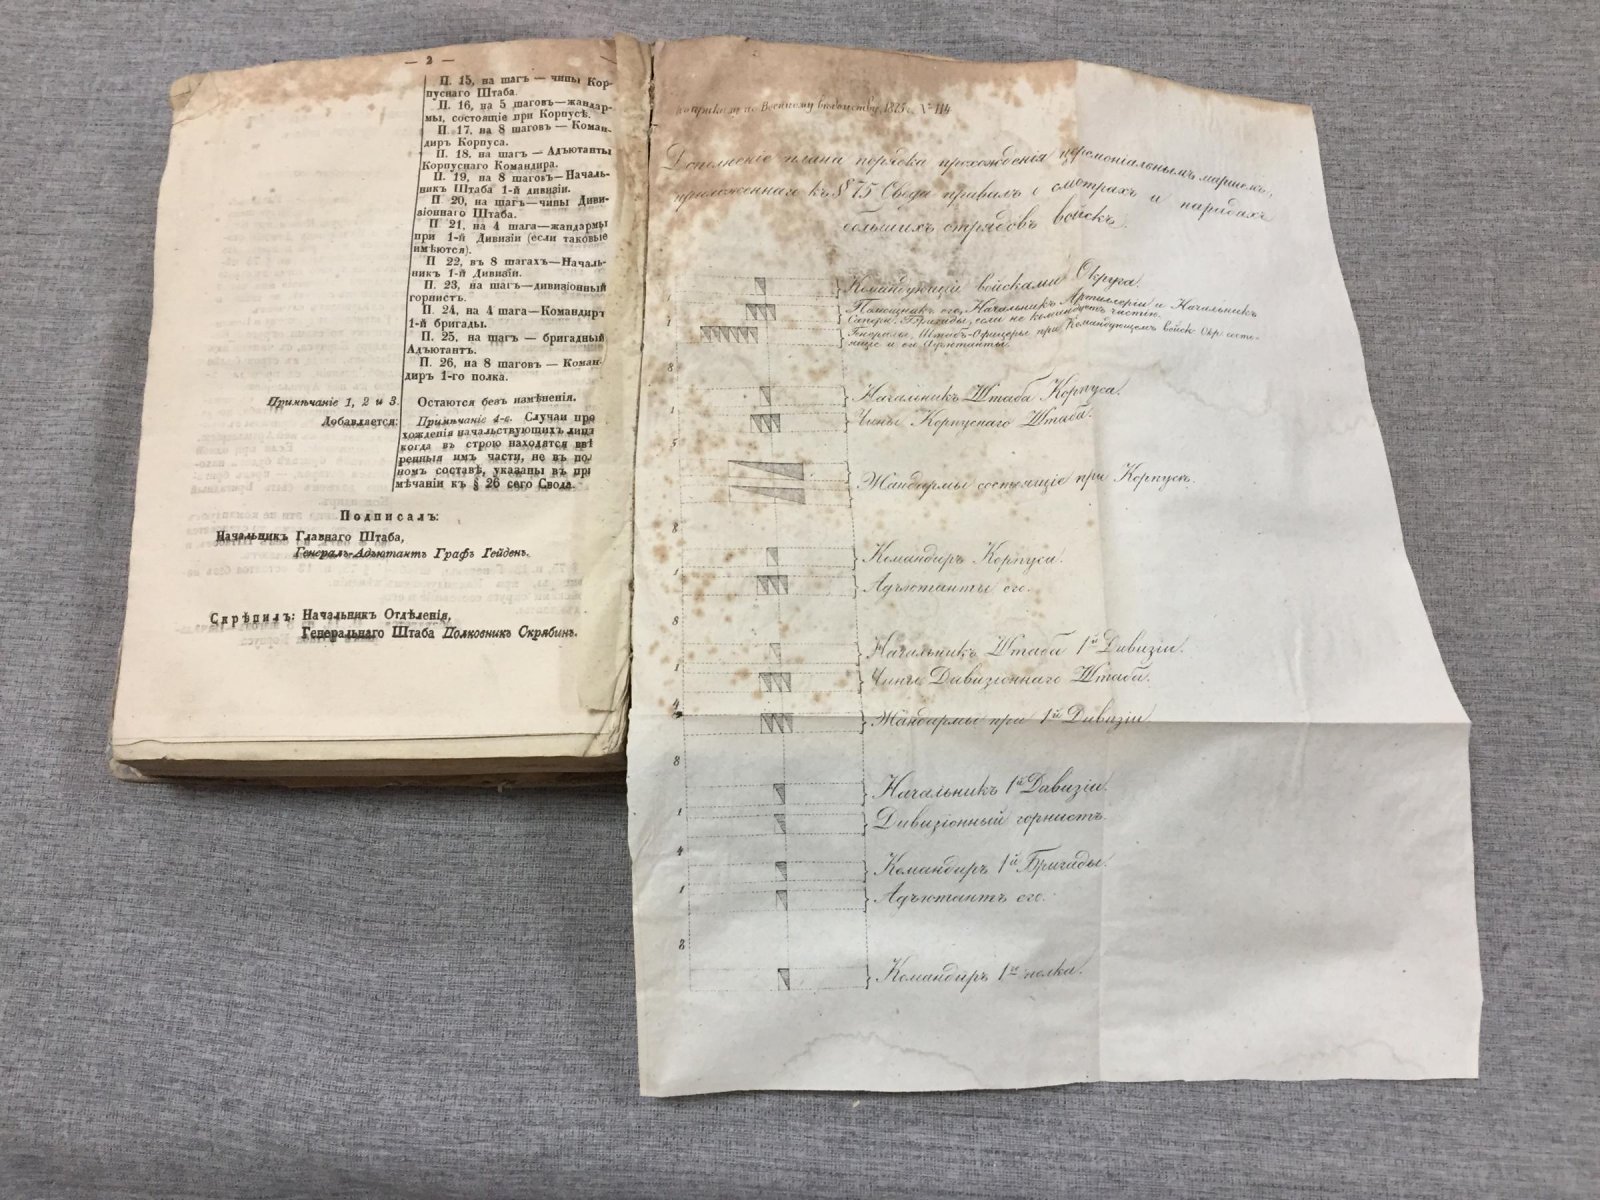 — 2 —
П. 15, на шагъ — чины Кор-
пуснаго Штаба.
П. 16, на 5 шаговъ—жандар-
мы, состоящіе при Корпусѣ.
П. 17, на 8 шаговъ — Коман-
диръ Корпуса.
П. 18, на шагъ — Адъютанты
Корпуснаго Командира.
П. 19, на 8 шаговъ—Началь-
никъ Штаба 1-й дивизіи.
П 20, на шагъ—чины Диви-
зіоннаго Штаба.
П 21, на 4 шага—жандармы
при 1-й Дивизіи (если таковые
имѣются).
П 22, въ 8 шагахъ—Началь-
никъ 1-й Дивизіи.
П. 23, на шагъ—дивизіонный
горнистъ.
П. 24, на 4 шага—Командиръ
1-й бригады.
П. 25, на шагъ — бригадный
Адъютантъ.
П. 26, на 8 шаговъ — Коман-
диръ 1-го полка.
Примѣчаніе 1, 2 и 3. Остаются безъ измѣненія.
Добавляется: Примѣчаніе 4-е. Случаи про
хожденія начальствующихъ лицъ
когда въ строю находятся ввѣ
ренныя имъ части, не въ пол
номъ составѣ, указаны въ при
мѣчаніи къ § 26 сего Свода.
Подписалъ:
Начальникъ Главнаго Штаба,
Генералъ-Адъютантъ Графъ Гейденъ.
Скрѣпилъ: Начальникъ Отдѣленія,
Генеральнаго Штаба Полковникъ Скрябинъ.
по Военному вѣдомству, № 114
Дополненіе плана порядка прохожденія церемоніальнымъ маршемъ,
приложеннаго къ § 75 Свода правилъ о смотрахъ и парадахъ
большихъ отрядовъ войскъ.
Командующій войсками Округа.
1 Помощникъ его, Начальникъ Артиллеріи и Начальникъ
Саперн. Бригады, если не командуетъ частію.
1 Генералы, Штабъ-Офицеры при Командующемъ войск. Окр. состо-
ящіе и его Адъютанты.
8 Начальникъ Штаба Корпуса.
1 Чины Корпуснаго Штаба.
5 Жандармы состоящіе при Корпусѣ.
8 Командиръ Корпуса.
1 Адъютанты его.
8 Начальникъ Штаба 1й Дивизіи.
1 Чины Дивизіоннаго Штаба.
4 Жандармы при 1й Дивизіи
8 Начальникъ 1й Дивизіи.
1 Дивизіонный горнистъ.
4 Командиръ 1й Бригады.
1 Адъютантъ его.
8 Командиръ 1го полка.